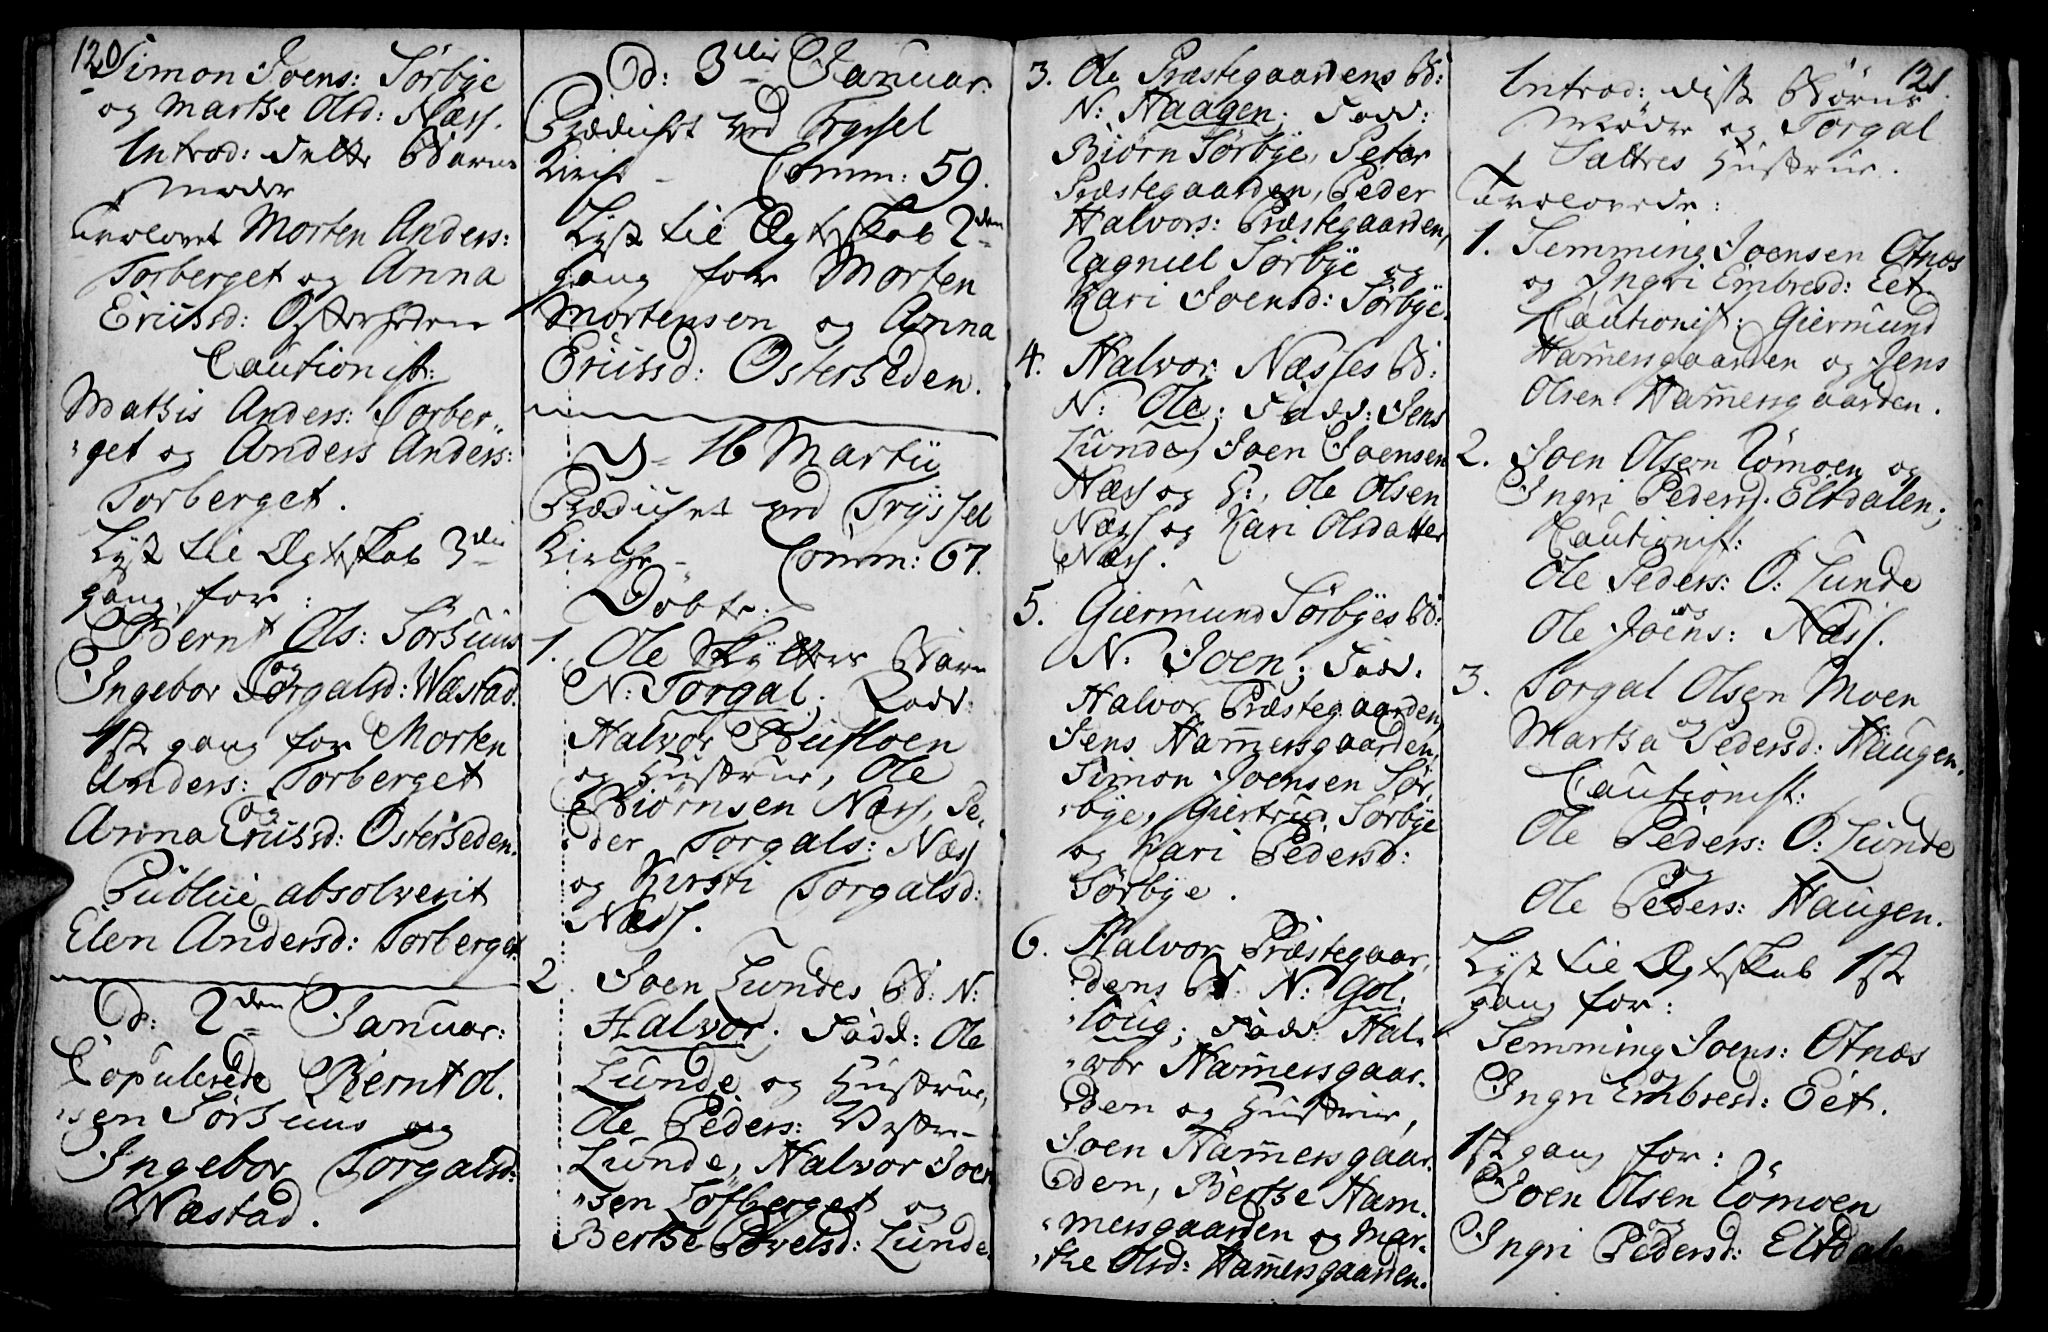 120
Simon Joens: Sørbye
og Marthe Olsd: Næss.
Introd: dette Barns
Moder
Trolovet Morten Anders:
Torberget og Anna
Erichsd: Østerheden
Cautionist:
Mathis Anders: Torber-
get og Anders Anders:
Torberget.
Lyst til Ægteskab 3die
gang for:
Bernt Ols: Sørhuus
og
Ingebor Torgalsd: Wæstad.
1st gang for Morten
Anders: Torberget
og
Anna Erichsd: Østerheden.
Publicè absolverit
Elen Andersd: Torberget.
D: 2den Januar:
Copulerede Bernt Ol-
sen Sørhuus og
Ingebor Torgalsd:
Wæstad.
D: 3die Januar.
Prædichet ved Tryssel
Kirche - Comm: 59.
Lyst til Ægteskab 2den
gang for Morten
Mortensen og Anna
Erichsd: Østerheden.
D 16 Martij
Prædichet ved Tryssel
Kirche - Comm: 67.
Døbte:
1. Ole Skytters Barn
N: Torgal; Fadd:
Halvor
og Hustrue, Ole
Biørnsen Næss, Pe-
der Torgals: Næss
og Kirsti Torgalsd:
Næss.
2. Joen Lundes B: N:
Halvor. Fadd: Ole
Lunde og Hustrue,
Ole Peders: Vestre-
Lunde, Halvor Joen-
sen Löfberget og
Berthe Povelsd: Lunde.
3. Ole Præstegaardens B:
N: Haagen; Fadd:
Biørn Sørbye, Peter
Præstegaarden, Peder
Halvors: Præstegaarden,
Ragniel Sørbye og
Kari Joensd: Sørbye.
4. Halvor Næsses B:
N: Ole; Fadd: Jens
Lunde, Joen Joensen
Næss og H:, Ole Olsen
Næss og Kari Olsdatter
Næss.
5. Giermund Sørbyes B:
N: Joen; Fadd.
Halvor Præstegaarden,
Jens Ham̄ersgaarden,
Simon Joensen Sør-
bye, Giertrud Sørbye
og Kari Pedersd:
Sørbye.
6. Halvor Præstegaar-
dens B: N: Gol-
loug; Fadd: Hal-
vor Ham̄ersgaar-
den og Hustrue,
Joen Ham̄ersgaar-
den, Berthe Ham-
mersgaarden og Mar-
the Olsd: Ham̄ersgaarden.
121.
Introd: disse Børns
Mødre og Torgal
Sættres Hustrue.
Trolovede:
1. Semming Joensen Otnæs
og Ingri Embresd: Eet
Cautionist: Giermund
Ham̄ersgaarden og Jens
Olsen Ham̄ersgaarden.
2. Joen Olsen Römoen og
Ingri Pedersd: Eltdalen;
Cautionist:
Ole Peders: Ø: Lunde
og
Ole Joens: Næss.
3. Torgal Olsen Moen
og
Martha Pedersd: Haugen.
Cautionist:
Ole Peders: Ø: Lunde
og
Ole Peders: Haugen.
Lyst til Ægteskab 1st
gang for:
Semming Joens: Otnæs
og
Ingri Embresd: Eet.
1st gang for:
Joen Olsen Römoen
og
Ingri Pedersd: Eltdalen